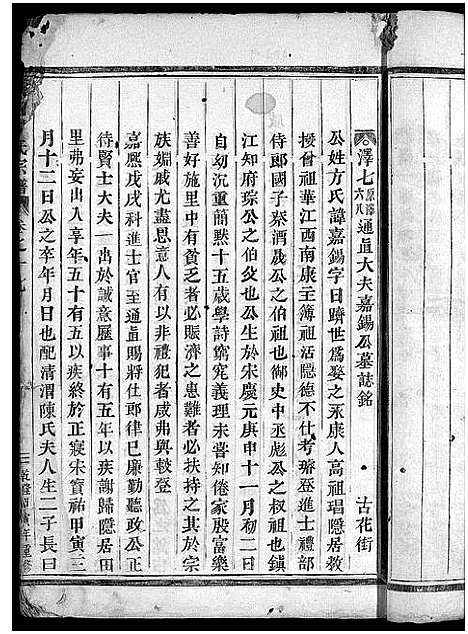 澤七原澤六八通直大夫嘉錫公墓誌銘 古花街
公姓方氏諱嘉錫字日躋世爲婺之永康人高祖瑥隱居教
授曾祖華江西南康主簿祖活隱德不仕考登進士禮部
侍郎國子祭酒晟公之伯祖也御史中丞彪公之叔祖也鎮
江知府琮公之伯父也公生於宋慶元庚申十一月初二日
自幼沉重簡默十五歲學詩窮究義理未嘗知倦家殷富樂
善好施里中有貧乏者必賑濟之患難者必扶持之其於宗
族姻戚尤盡恩意人有以非禮犯者咸弗與較登
嘉熙戊戌科進士官至通直賜將仕郎律己廉勤聽政公正
待賢士大夫一出於誠意歷事十有五年以疾謝歸隱居田
里弗妄出入享年五十有五以疾終於正寢宋寶祐甲寅三
月十二日公之卒年月日也配清渭陳氏夫人生二子長曰
氏宗譜 卷之